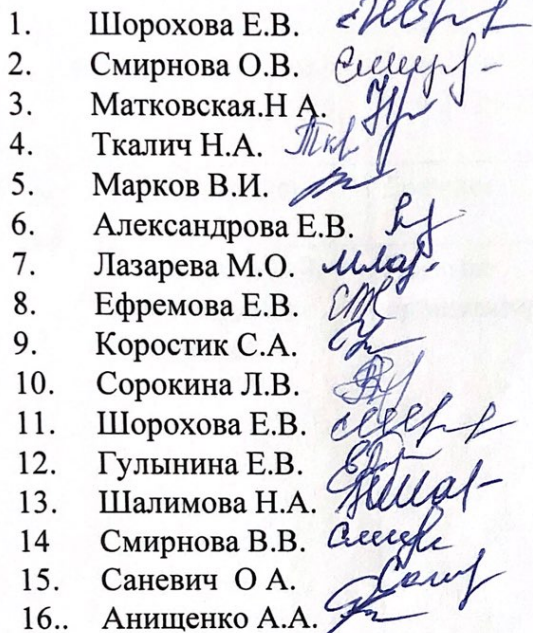 1. Шорохова Е.В.
2. Смирнова О.В.
3. Матковская.Н А.
4. Ткалич Н.А.
5. Марков В.И.
6. Александрова Е.В.
7. Лазарева М.О.
8. Ефремова Е.В.
9. Коростик С.А.
10. Сорокина Л.В.
11. Шорохова Е.В.
12. Гулынина Е.В.
13. Шалимова Н.А.
14 Смирнова В.В.
15. Саневич О А.
16.. Анищенко А.А.